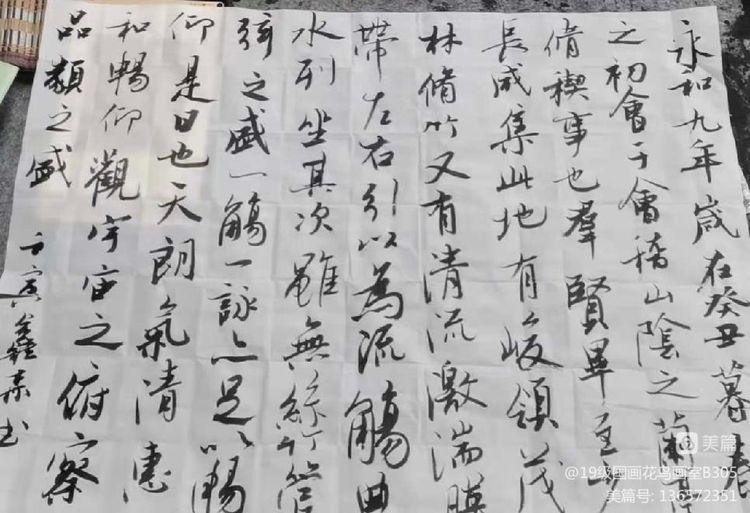 永和九年歲在癸丑暮春
之初會于會稽山陰之蘭亭
脩禊事也羣賢畢至少
長咸集此地有峻領茂
林脩竹又有清流激湍暎
帶左右引以為流觴曲
水列坐其次雖無絲竹管
弦之盛一觴一詠亦足以暢
仰是日也天朗氣清惠
和暢仰觀宇宙之俯察
品類之盛
壬寅
美篇
@19级国画花鸟画室B305
美篇号: 136572351